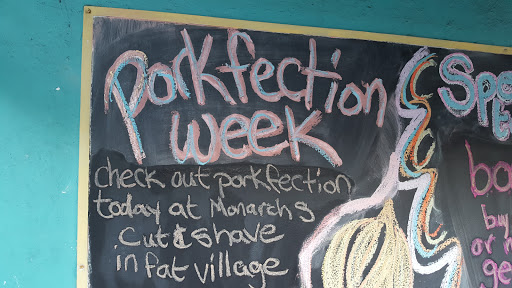 Porkfection
week
check out porkfection
today at Monarchs
cut & shave
in fat village
Spe
bo
buy
or
ge